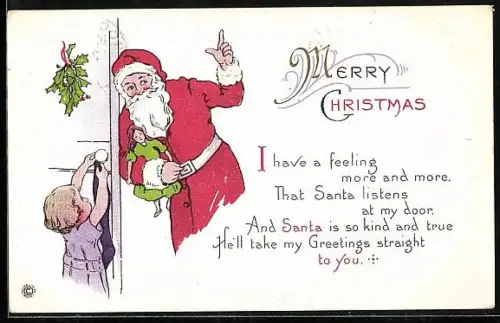 MERRY
CHRISTMAS
I have a feeling
more and more,
That Santa listens
at my door.
And Santa is so kind and true
He'll take my Greetings straight
to you.